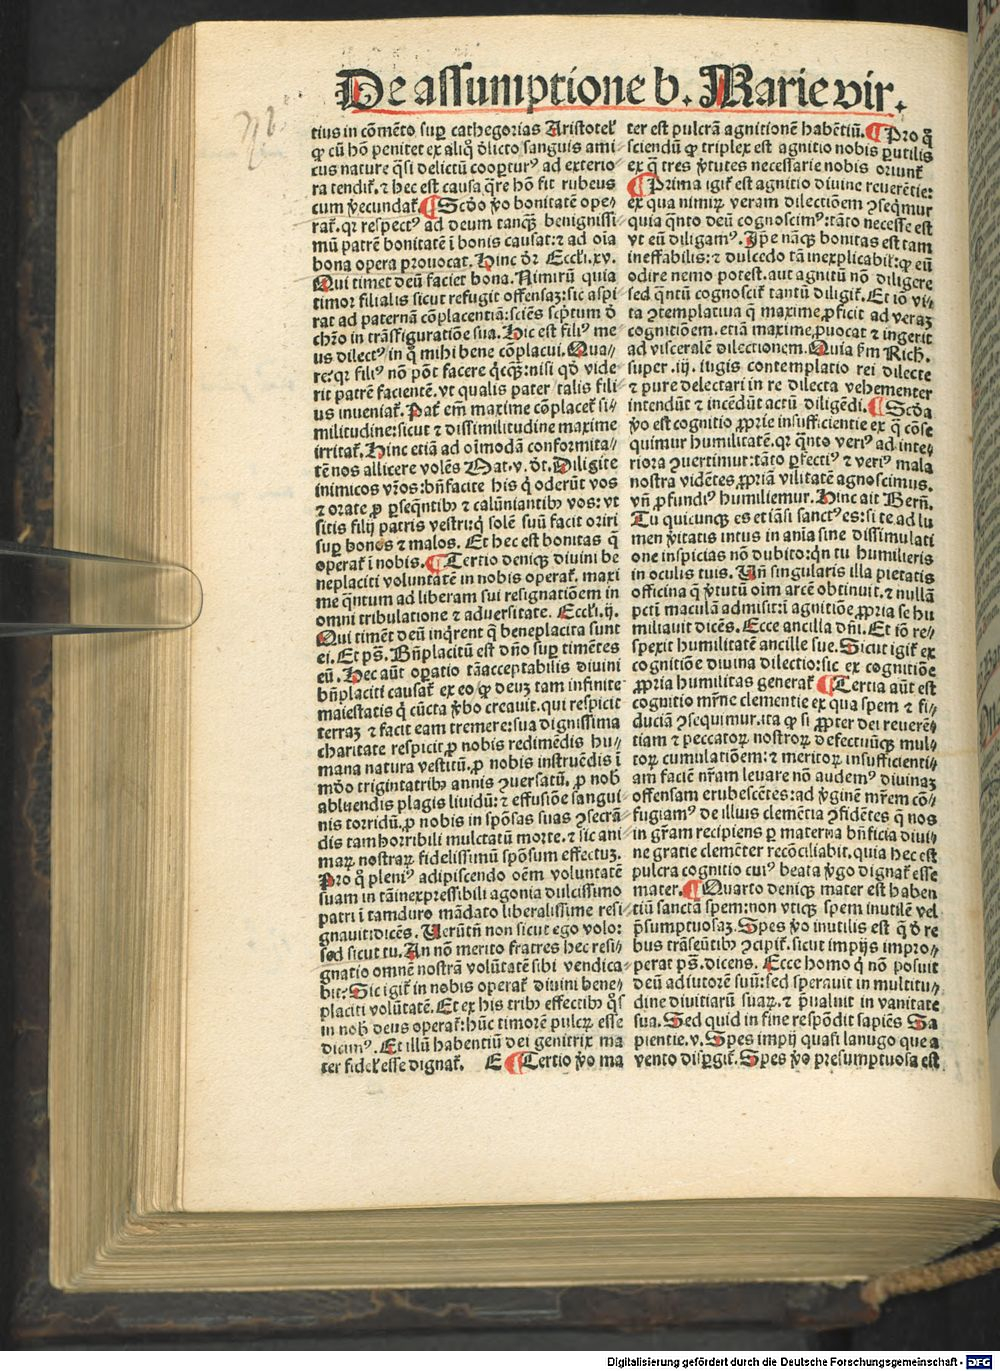 De assumptione b. Marie vir.
tius in cōmēto sup̲ cathegorias Aristotel̕
ꝙ cū hō penitet ex aliq̊ d̕licto sanguis ami
cus nature q̄si delictū cooptur⁹ ad exterio
ra tendit̕. ⁊ hec est causa q̄re hō fit rubeus
cum v̕ecundat̕. ¶ Scd̕o v̕o bonitatē ope⸗
rat̕. qr respect⁹ ad deum tanqȝ benignissi
mū patrē bonitatē ī bonis causat: ⁊ ad oīa
bona opera prouocat. Hinc d̕r Eccl̕i. xv.
Qui timet deū faciet bona. Nimirū quia
timor filialis sicut refugit offensaȝ: sic aspi
rat ad paternā cōplacentiā: sciēs scptum d̕
chr̄o in trāsfiguratiōe sua. Hic est fili⁹ me
us dilect⁹ in q̊ mihi bene cōplacui. Qua⸗
re: qr fili⁹ nō pōt facere q̄cqȝ: nisi qd̕ vide
rit patrē facientē. vt qualis pater talis fili
us inueniat̕. Pat̕ em̄ maxime cōplacet̕ si⸗
militudine: sicut ⁊ dissimilitudine maxime
irritat̕. Hinc etiā ad oīmodā conformita⸗
tē nos allicere volēs Mat. v. d̕t. Diligite
inimicos vr̄os: bn̄facite his q̇ oderūt vos
⁊ orate ꝓ ꝑseq̄ntibꝰ ⁊ calūniantibꝰ vos: vt
sitis filij patris vestri: q̇ solē suū facit oriri
sup̲ bonos ⁊ malos. Et hec est bonitas q̄
operat̕ ī nobis. ¶ Tertio deniqȝ diuini be
neplaciti voluntatē in nobis operat̕. maxi
me q̄ntum ad liberam sui resignatiōem in
omni tribulatione ⁊ aduersitate. Eccl̕i. ij.
Qui timēt deū inq̇rent q̄ beneplacita sunt
ei. Et ps̄. Bn̄placitū est dn̄o super timētes
eū. Hec aūt oꝑatio tā acceptabilis diuini
bn̄placiti causat̕ ex eo / ꝙ deuȝ tam infinite
maiestatis q̇ cūcta v̕bo creauit. qui respicit
terraȝ ⁊ facit eam tremere: sua dignissima
charitate respicit ꝓ nobis redimēdis hu⸗
mana natura vestitū. ꝓ nobis instruēdis ī
mūdo trigintatribꝰ annis ꝯuersatū. ꝓ nob̕
abluendis plagis liuidū: ⁊ effusiōe sangui
nis torridū. ꝓ nobis in spōsas suas ꝯsecrā
dis tam horribili mulctatū morte. ⁊ sic ani⸗
marꝝ nostrarꝝ fidelissimū spōsum effectuȝ.
Pro q̊ pleni⁹ adipiscendo oēm voluntatē
suam in tā inexpressibili agonia dulcissimo
patri ī tam duro mādato liberalissime resi
gnauit: dicēs. Uerūtn̄ non sicut ego volo:
sed sicut tu. An nō merito fratres hec resi⸗
gnatio omnē nostrā volūtatē sibi vendica
bit: Sic igit̕ in nobis operat̕ diuini bene⸗
placiti volūtatē. Et ex his tribꝰ effectibꝰ q̊s
in nob̕ deus operat̕: hūc timorē pulcrꝝ esse
dicim⁹. Et illū habentiū dei genitrix ma
ter fidel̕ esse dignat̕. E ¶ Tertio v̕o ma
ter est pulcrā agnitionē habētiū. ¶ Pro q̊
sciendū ꝙ triplex est agnitio nobis ꝑutilis
ex q̄ tres v̕tutes necessarie nobis oriunt̕
¶ Prima igit̕ est agnitio diuine reuerētie:
ex qua nimirꝝ veram dilectiōem ꝯseq̄mur
quia q̄nto deū cognoscim⁹: tāto necesse est
vt eū diligam⁹. Ip̄e nāqȝ bonitas est tam
ineffabilis: ⁊ dulcedo tā inexplicabil̕: ꝙ eū
odire nemo potest. aut agnitū nō diligere
sed q̄ntū cognoscit̕ tantū diligit̕. Et iō vi⸗
ta ꝯtemplatiua q̄ maxime ꝓficit ad veraȝ
cognitiōem. etiā maxime ꝓuocat ⁊ ingerit
ad visceralē dilectionem. Quia s̄m Rich.
super. iij. iugis contemplatio rei dilecte
⁊ pure delectari in re dilecta vehementer
intendūt ⁊ incēdūt actū diligēdi. ¶ Scd̕a
v̕o est cognitio ꝓprie insufficientie ex q̄ cōse
quimur humilitatē. qr q̄nto veri⁹ ad inte⸗
riora ꝯuertimur: tāto ꝑfecti⁹ ⁊ veri⁹ mala
nostra vidētes ꝓpriā vilitatē agnoscimus.
vn̄ ꝓfundi⁹ humiliemur. Hinc ait Bern̄.
Tu quicunqȝ es etiāsi sanct⁹ es: si te ad lu
men v̕itatis intus in aīa sine dissimulati
one inspicias nō dubito: qn̄ tu humilieris
in oculis tuis. Un̄ singularis illa pietatis
officina q̄ v̕tutū oīm arcē obtinuit. ⁊ nullā
pctī maculā admisit: ī agnitiōe ꝓpria se hu
miliauit dicēs. Ecce ancilla dn̄i. Et iō re⸗
spexit humilitatē ancille sue. Sicut igit̕ ex
cognitiōe diuina dilectio: sic ex cognitiōe
ꝓpria humilitas generat̕ ¶ Tertia aūt est
cognitio mr̄ne clementie ex qua spem ⁊ fi⸗
duciā ꝯsequimur. ita ꝙ si ꝓpter dei reuerē⸗
tiam ⁊ peccatorꝝ nostrorꝝ defectuūqȝ mul⸗
torꝝ cumulatiōem: ⁊ meritorꝝ insufficienti⸗
am faciē nr̄am leuare nō audem⁹ diuinaȝ
offensam erubescētes: ad v̕ginē mr̄em cō⸗
fugiam⁹ de illius clemētia ꝯfidētes q̄ nos
in gr̄am recipiens ꝑ materna bn̄ficia diui⸗
ne gratie clemēter recōciliabit. quia hec est
pulcra cognitio cui⁹ beata v̕go dignat̕ esse
mater. ¶ Quarto deniqȝ mater est haben
tiū sanctā spem: non vtiqȝ spem inutilē vel
p̄sumptuosaȝ. Spes v̕o inutilis est q̄ d̕ re
bus trāseūtibꝰ ꝯcipit̕. sicut impijs impro⸗
perat ps̄. dicens. Ecce homo q̇ nō posuit
deū adiutorē suū: sed sperauit in multitu⸗
dine diuitiarū suarꝝ. ⁊ p̄ualuit in vanitate
sua. Sed quid in fine respōdit sapiēs Sa
pientie. v. Spes impij quasi lanugo que a
vento disꝑgit̕. Spes v̕o presumptuosa est
Digitalisierung gefördert durch die Deutsche Forschungsgemeinschaft - DFG